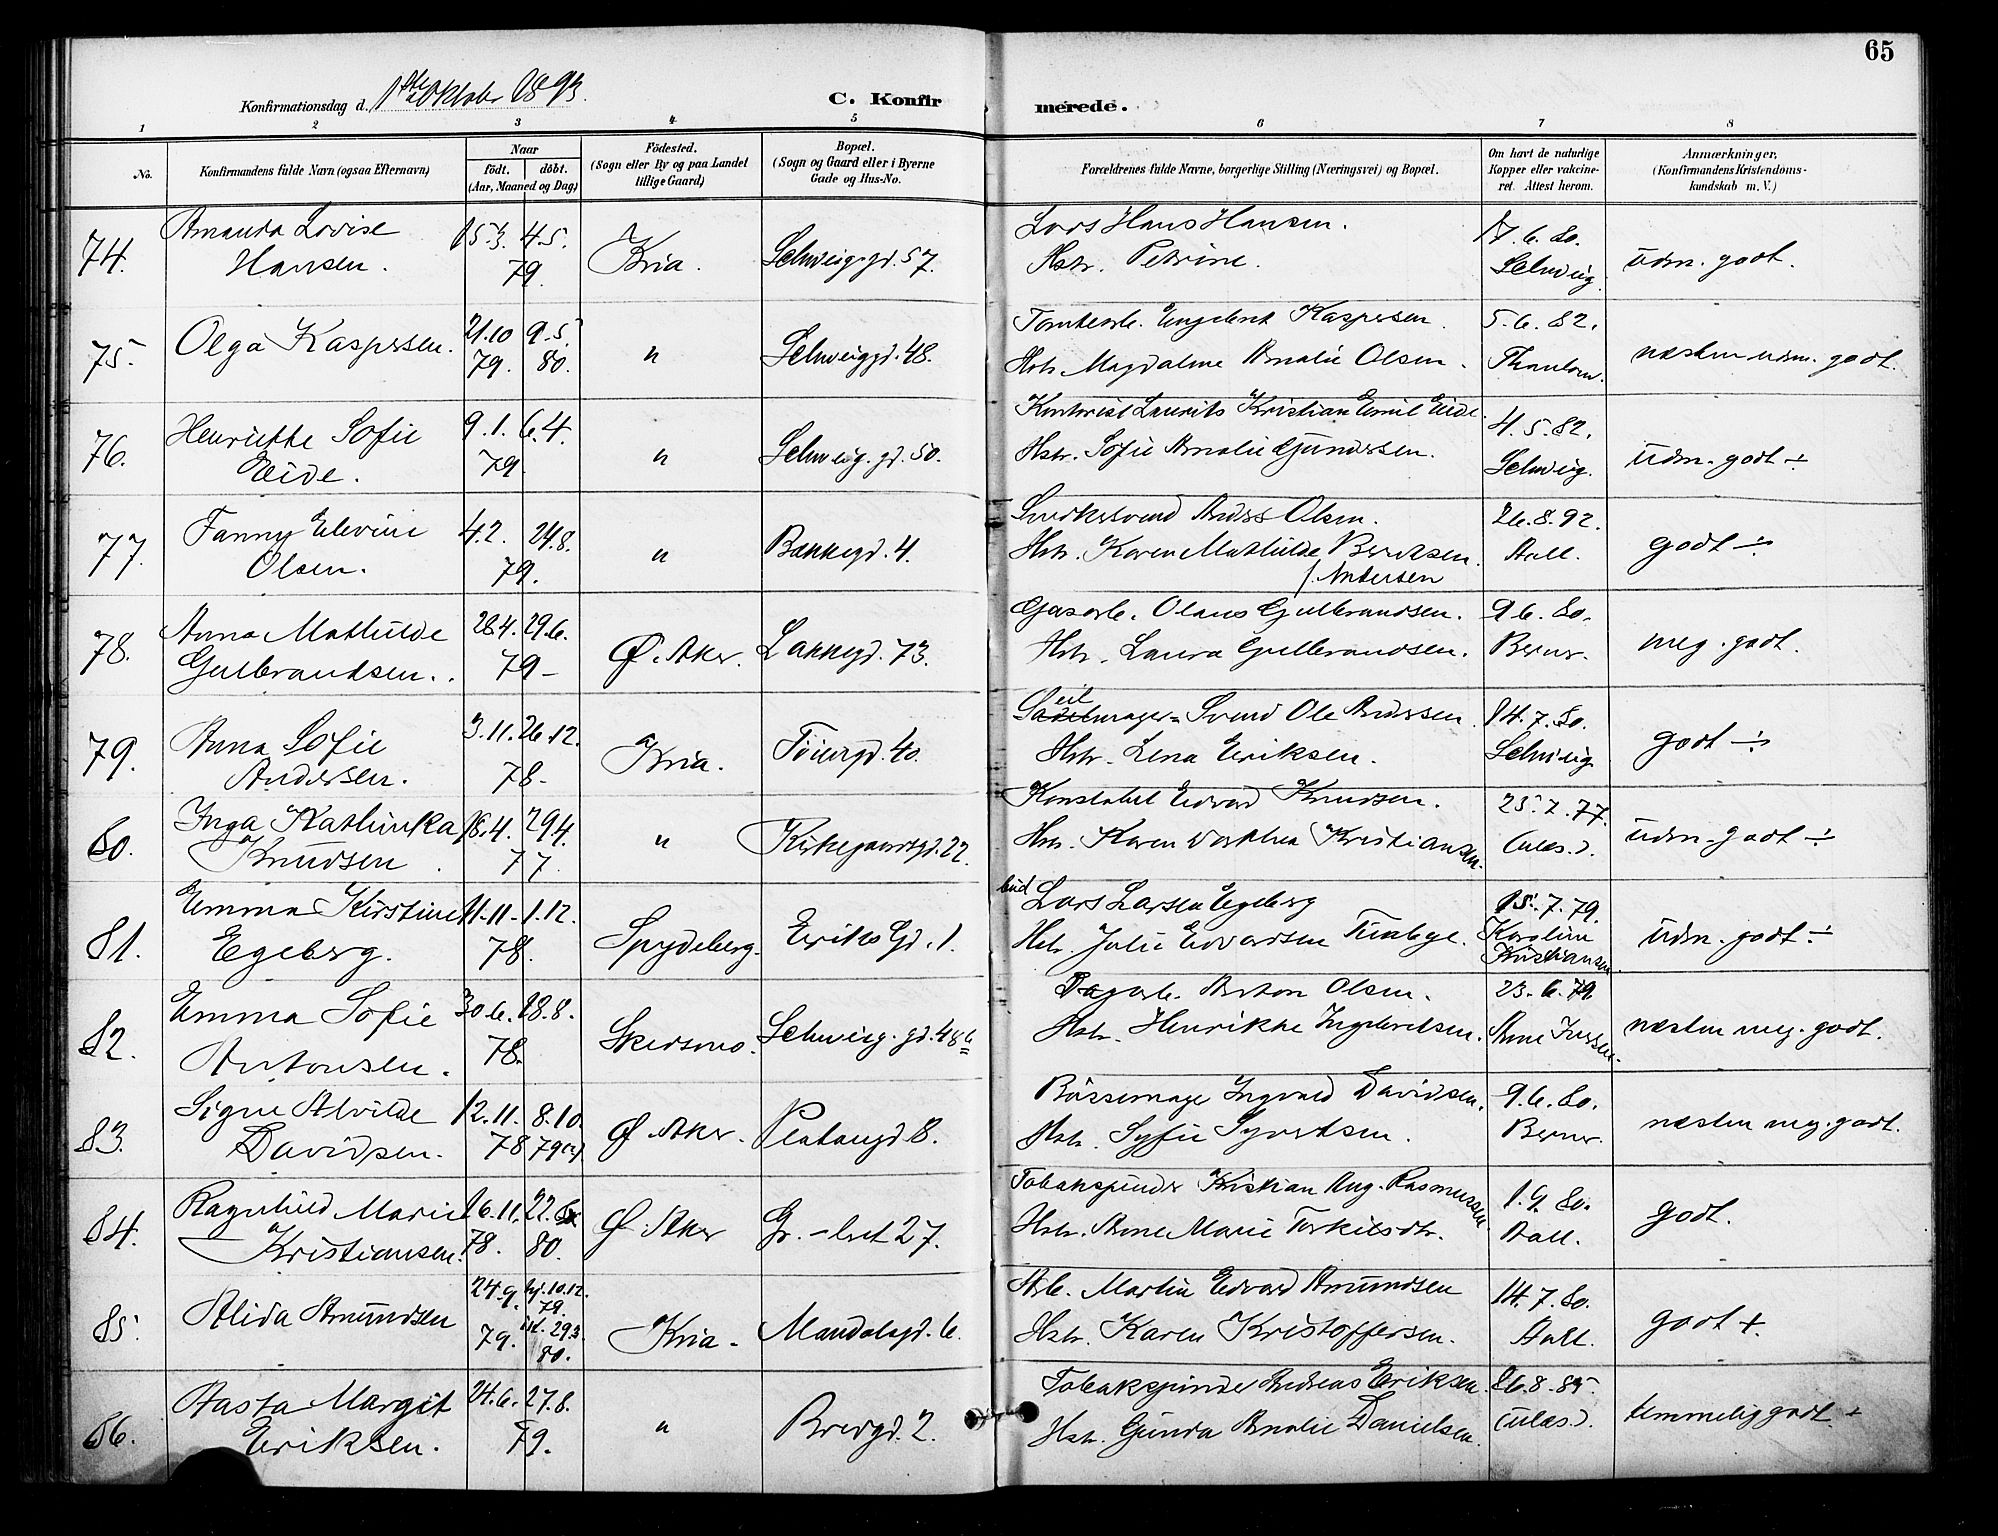 65
Konfirmationsdag d. 1ste Oktober 1893.
C. Konfir merede.
1 2 3 4 5 6 7 8
No. Konfirmandens fulde Navn (ogsaa Efternavn) Naar födt. döbt. (Aar, Maaned og Dag) Födested. (Sogn eller By og paa Landet tillige Gaard) Bopæl. (Sogn og Gaard eller i Byerne Gade og Hus-No. Forældrenes fulde Navne, borgerlige Stilling (Næringsvei) og Bopæl. Om havt de naturlige Kopper eller vakcineret. Attest herom. Anmærkninger, (Konfirmandens Kristendomskundskab m. V.)
74. Amanda Lovise 15.3. 4.5. Lars Hans Hansen. 17.6.80.
Hansen. 79. Kria. Schweigg.gd. 57. Hstr. Petrine. Schwig. udm. godt.
75. Olga Kaspersen. 21.10 9.5. Tomtearb. Engebret Kaspersen. 5.6.82.
79. 80. " Schweiggd. 48. Hstr. Magdalene Amalie Olsen. Thaulow. næsten udm. godt.
76. Henriette Sofie 9.1. 6.4. Kontorist Laurits Kristian Emil Eide. 4.5.82.
Eide. 79. " Schweig. gd. 50. Hstr. Sofie Amalie Gundersen. Schwig. udm. godt ÷
77. Fanny Elevine 4.2. 24.8. Snedkersvend Anders Olsen. 26.8.92.
Olsen. 79. " Bakkegd. 4. Hstr. Karen Mathilde Berntsen. Aall. godt ÷
f. Andersen
78. Anna Mathilde 28.4. 29.6. Gasarb. Olaus Gulbrandsen. 9.6.80.
Gulbrandsen. 79 - Ø. Aker. Lakkegd. 73. Hstr. Laura Gulbrandsen. Berner. meg. godt.
79. Anna Sofie 3.11. 26.12. Seilmager-Svend Ole Andersen. 14.7.80.
Andersen. 78. Kria. Töiengd. 40. Hstr. Lena Eriksen. Schwig. godt ÷
80. Inga Kathinka 18.4. 29.4. Konstabel Edvard Knudsen. 25.7.77.
Knudsen. 77. " Kirkegaardsgd. 22. Hstr. Karen Dorthea Kristiansen. (ulæs.). udm. godt ÷
81. Emma Kirstine 11.11. 1.12. bud Lars Larsen Egeberg 15.7.79.
Egeberg. 78. Spydeberg. Eriks Gd. 1. Hstr. Julie Edvardsen Karoline Kristiansen. udm. godt ÷
82. Emma Sofie 30.6. 18.8. Dagarb. Anton Olsen. 23.6.79
Antonsen. 78. Skedsmo. Schweigg. gd. 48 b Hstr. Henrikke Ingebretsen. næsten meg. godt.
83. Signe Alvilde 12.11. 8.10. Bössemager Ingvald Davidsen. 9.6.80.
Davidsen. 78 79 Ø. Aker. Platougd. 8. Hstr. Syversen. Berner. næsten meg. godt.
84. Ragnhild Marie 16.11. 22. Tobakspinder Kristian Aug. Rasmussen. 1.9.80.
Kristiansen. 78. 80. Ø. Aker Gr.-lret 27. Hstr. Anne Marie Torkilsdtr. Aall. godt.
85. Alida Amundsen 24.9. hj. 10.12. 79. Arb. Martin Edvard Amundsen 14.7.80.
79. 29.3. 80. Kria. Mandalsgd. 6. Hstr. Karen Kristoffersen. Aall. godt +.
86. Aasta Margit 24.6. 27.8. Tobakspinder Andreas Eriksen. 26.8.85.
Eriksen. 79. " Bredgd. 2. Hstr. Gunda Amalie Danielsen. (ulæs.). temmelig godt +